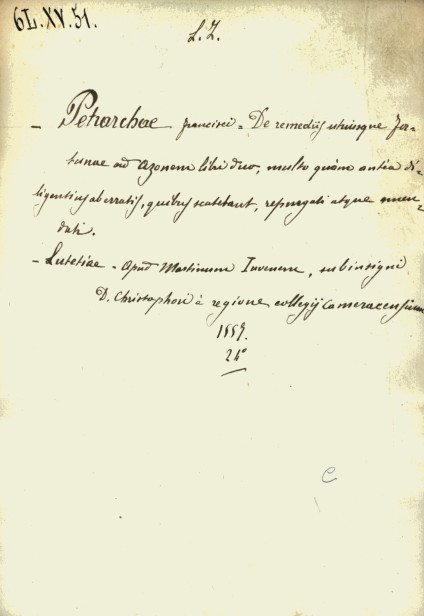 6L.XV.51.
L.Z.
- Petrarchae Francisci = De remediis utriusque for=
tunae ad Azonem libri duo, multo quàm antea di=
ligentius aberratis, quibus scatebant, repurgati atque emen=
dati.
- Lutetiae - Apud Martinum Iuvenem, sub insigni
D. Christophori è regione collegij Cameracensium
24°
C